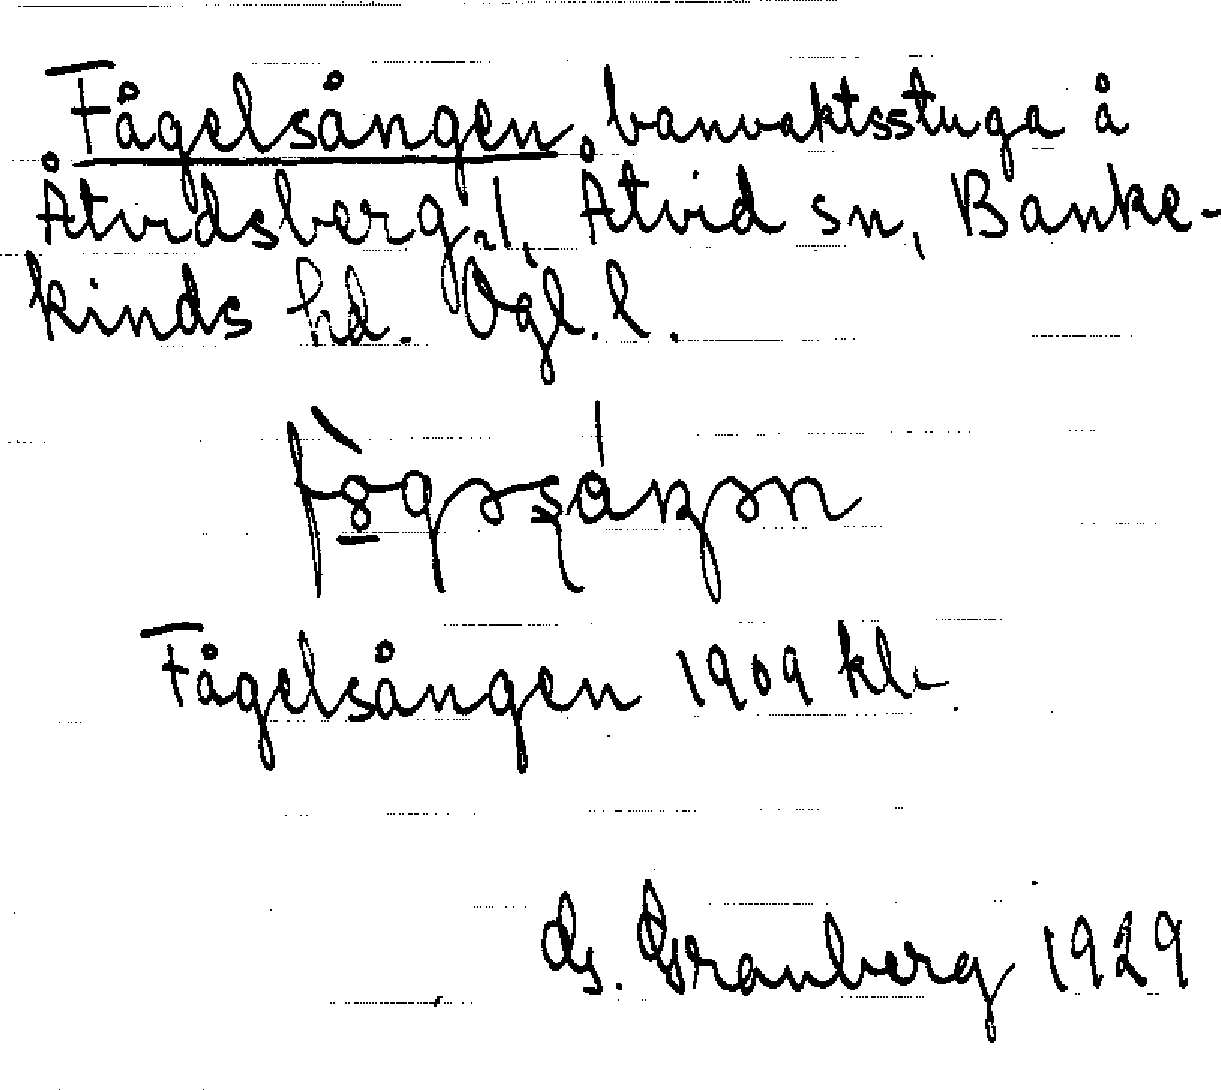 Fågelsången, banvaktsstuga å
Åtvidsberg 1/1, Åtvid sn, Banke-
kinds hd. Ögl. l.
Fågelsången 1909 kl.
G. Granberg 1929